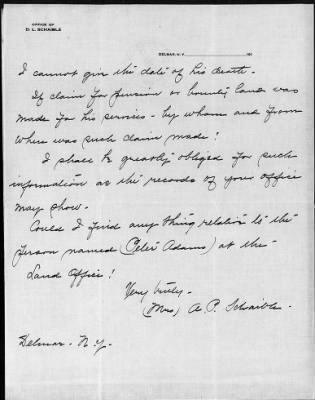 OFFICE OF
D. L. SCHAIBLE
DELMAR, N. Y. 191
I cannot give the date of his death.
If claim for pension or bounty land was
made for his services - by whom and from
where was such claim made?
I shall be greatly obliged for such
information as the records of your office
may show.
Could I find any thing relative to the
person named (Peter Adams) at the
Land Office?
Very truly -
(Mrs) A. P. Schaible
Delmar - N. Y.